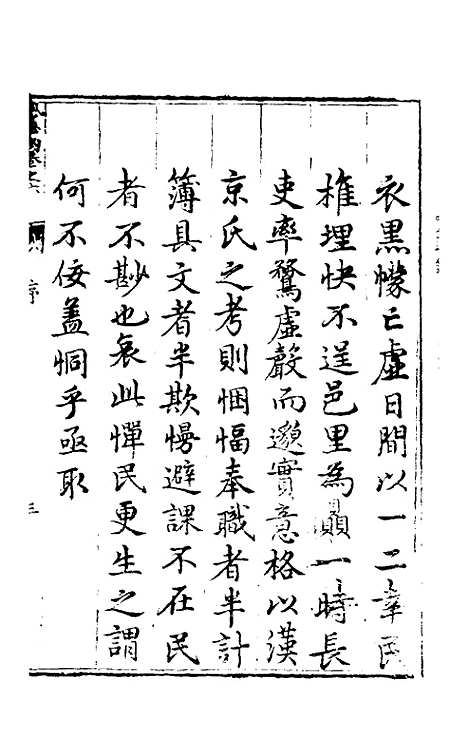 衣黑幪亡虛日間以一二莠民
椎埋快不逞邑里為贔一時長
吏率騖虛聲而邈實意格以漢
京氏之考則悃愊奉職者半計
簿具文者半欺慢避課不在民
者不尠也哀此憚民更生之謂
何不佞盖恫乎亟取
序
三